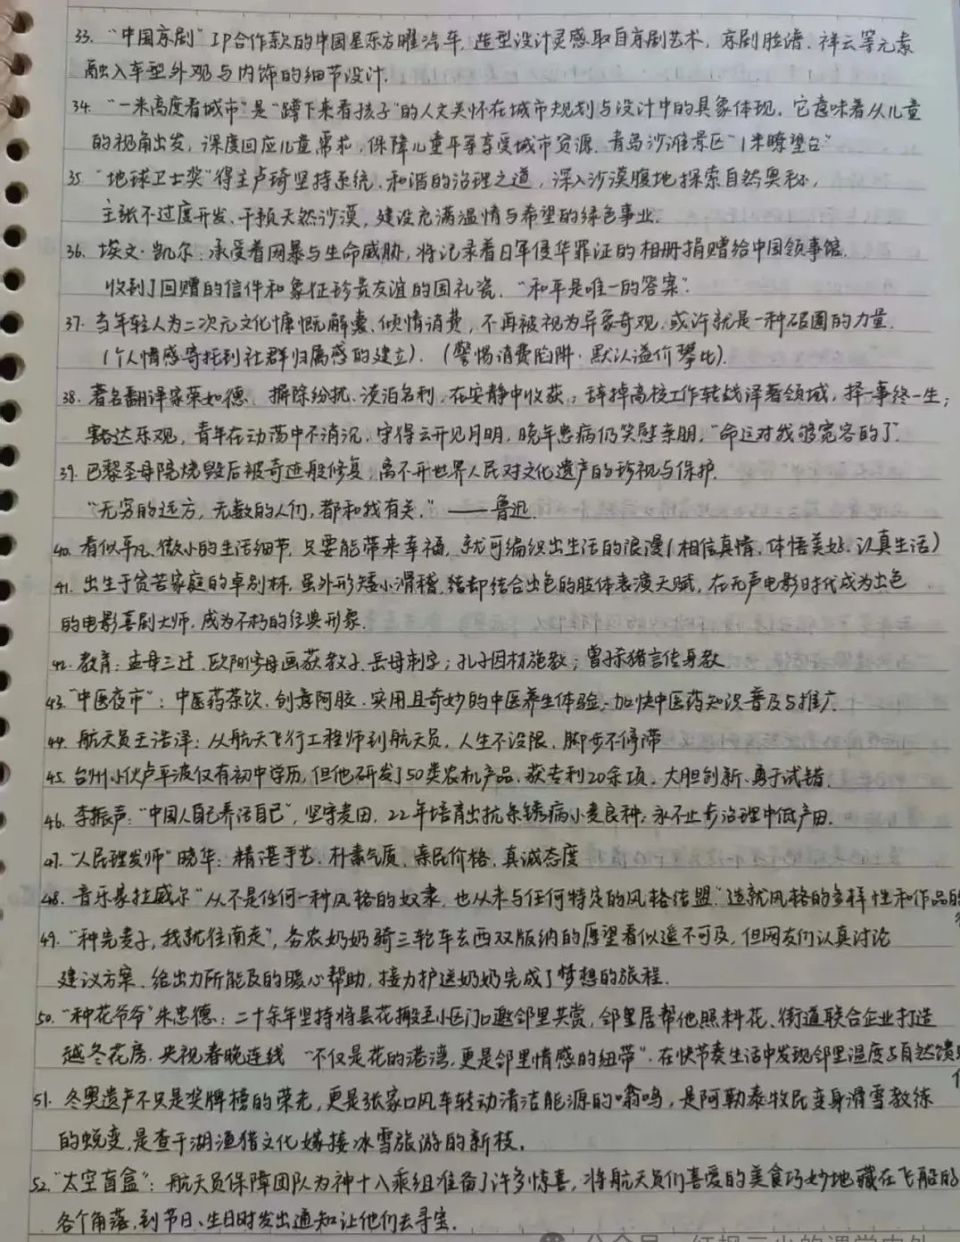 33. “中国京剧”IP合作款的中国星东方曜汽车，造型设计灵感取自京剧艺术，京剧脸谱、祥云等元素
融入车型外观与内饰的细节设计.
34. “一米高度看城市”是“蹲下来看孩子”的人文关怀在城市规划与设计中的具象体现，它意味着从儿童
的视角出发，深度回应儿童需求，保障儿童平等享受城市资源. 青岛沙滩景区“1米瞭望台”
35 “地球卫士奖”得主卢琦坚持系统、和谐的治理之道，深入沙漠腹地探索自然奥秘，
主张不过度开发、干预天然沙漠，建设充满温情与希望的绿色事业.
36. 埃文·凯尔：承受着网暴与生命威胁，将记录着日军侵华罪证的相册捐赠给中国领事馆.
收到了回赠的信件和象征珍贵友谊的国礼瓷. “和平是唯一的答案”.
37. 当年轻人为二次元文化慷慨解囊、倾情消费，不再被视为异象奇观，或许就是一种破圈的力量.
(个人情感寄托到社群归属感的建立). (警惕消费陷阱·默认溢价攀比).
38. 著名翻译家荣如德、摒除纷扰、淡泊名利，在安静中收获，辞掉高校工作转战译著领域，择一事终一生；
豁达乐观，青年在动荡中不消沉，守得云开见月明，晚年患病仍笑慰亲朋，“命运对我够宽容的了”.
39. 巴黎圣母院烧毁后被奇迹般修复，离不开世界人民对文化遗产的珍视与保护.
“无穷的远方，无数的人们，都和我有关.” ——鲁迅.
40. 看似平凡、微小的生活细节，只要能带来幸福，就可编织出生活的浪漫(相信真情、体悟美好、认真生活)
41. 出生于贫苦家庭的卓别林，虽外形矮小滑稽，结合出色的肢体表演天赋，在无声电影时代成为出色
的电影喜剧大师，成为不朽的经典形象.
42. 教育：孟母三迁、欧阳修母画荻教子、岳母刺字；孔子因材施教；曾子杀猪言传身教
43. “中医夜市”：中医药茶饮、创意阿胶、实用且奇妙的中医养生体验，加快中医药知识普及与推广.
44. 航天员王浩泽：从航天飞行工程师到航天员，人生不设限，脚步不停滞
45. 台州小伙卢平波仅有初中学历，但他研发了50类农机产品、获专利20余项、大胆创新、勇于试错.
46. 李振声：“中国人自己养活自己”，坚守麦田，22年培育出抗条锈病小麦良种，永不止步治理中低产田.
47. “人民理发师”晓华：精湛手艺、朴素气质、亲民价格、真诚态度
48. 音乐家拉威尔“从不是任何一种风格的奴隶，也从未与任何特定的风格结盟.”造就风格的多样性和作品的
49. “种完麦子，我就往南走”，务农奶奶骑三轮车去西双版纳的愿望看似遥不可及，但网友们认真讨论
建议方案、给出力所能及的暖心帮助，接力护送奶奶完成了梦想的旅程.
50. “种花爷爷”朱忠德：二十余年坚持将昙花搬至小区门口邀邻里共赏，邻里居帮他照料花、街道联合企业打造
越冬花房、央视春晚连线 “不仅是花的港湾，更是邻里情感的纽带”. 在快节奏生活中发现邻里温度与自然馈
51. 冬奥遗产不只是奖牌榜的荣光，更是张家口风车转动清洁能源的嗡鸣，是阿勒泰牧民变身滑雪教练
的蜕变，是查干湖渔猎文化嫁接冰雪旅游的新枝.
52. “太空盲盒”：航天员保障团队为神十八乘组准备了许多惊喜，将航天员们喜爱的美食巧妙地藏在飞船的
各个角落，到节日、生日时发出通知让他们去寻宝.